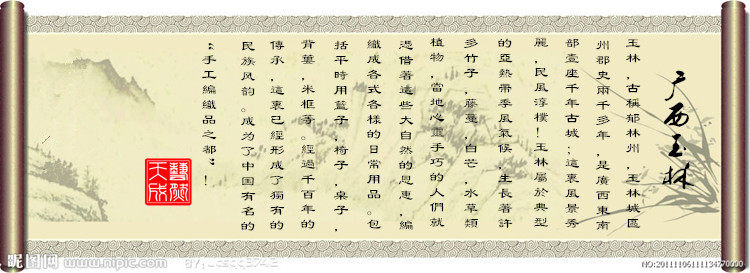 广西玉林
玉林，古稱郁林州，玉林城區
州郡史兩千多年，是廣西東南
部壹座千年古城；這裏風景秀
麗，民風淳樸！玉林屬於典型
的亞熱帶季風氣候，生長著許
多竹子，藤蔓，白芒，水草類
植物，當地心靈手巧的人們就
憑借著這些大自然的恩惠，編
織成各式各樣的日常用品。包
括平時用籃子，椅子，桌子，
背簍，米框等。經過千百年的
傳承，這裏已經形成了獨有的
民族风韵。成为了中国有名的
“手工編織品之都”！
昵图网 www.nipic.com
NO:20111106111134770000